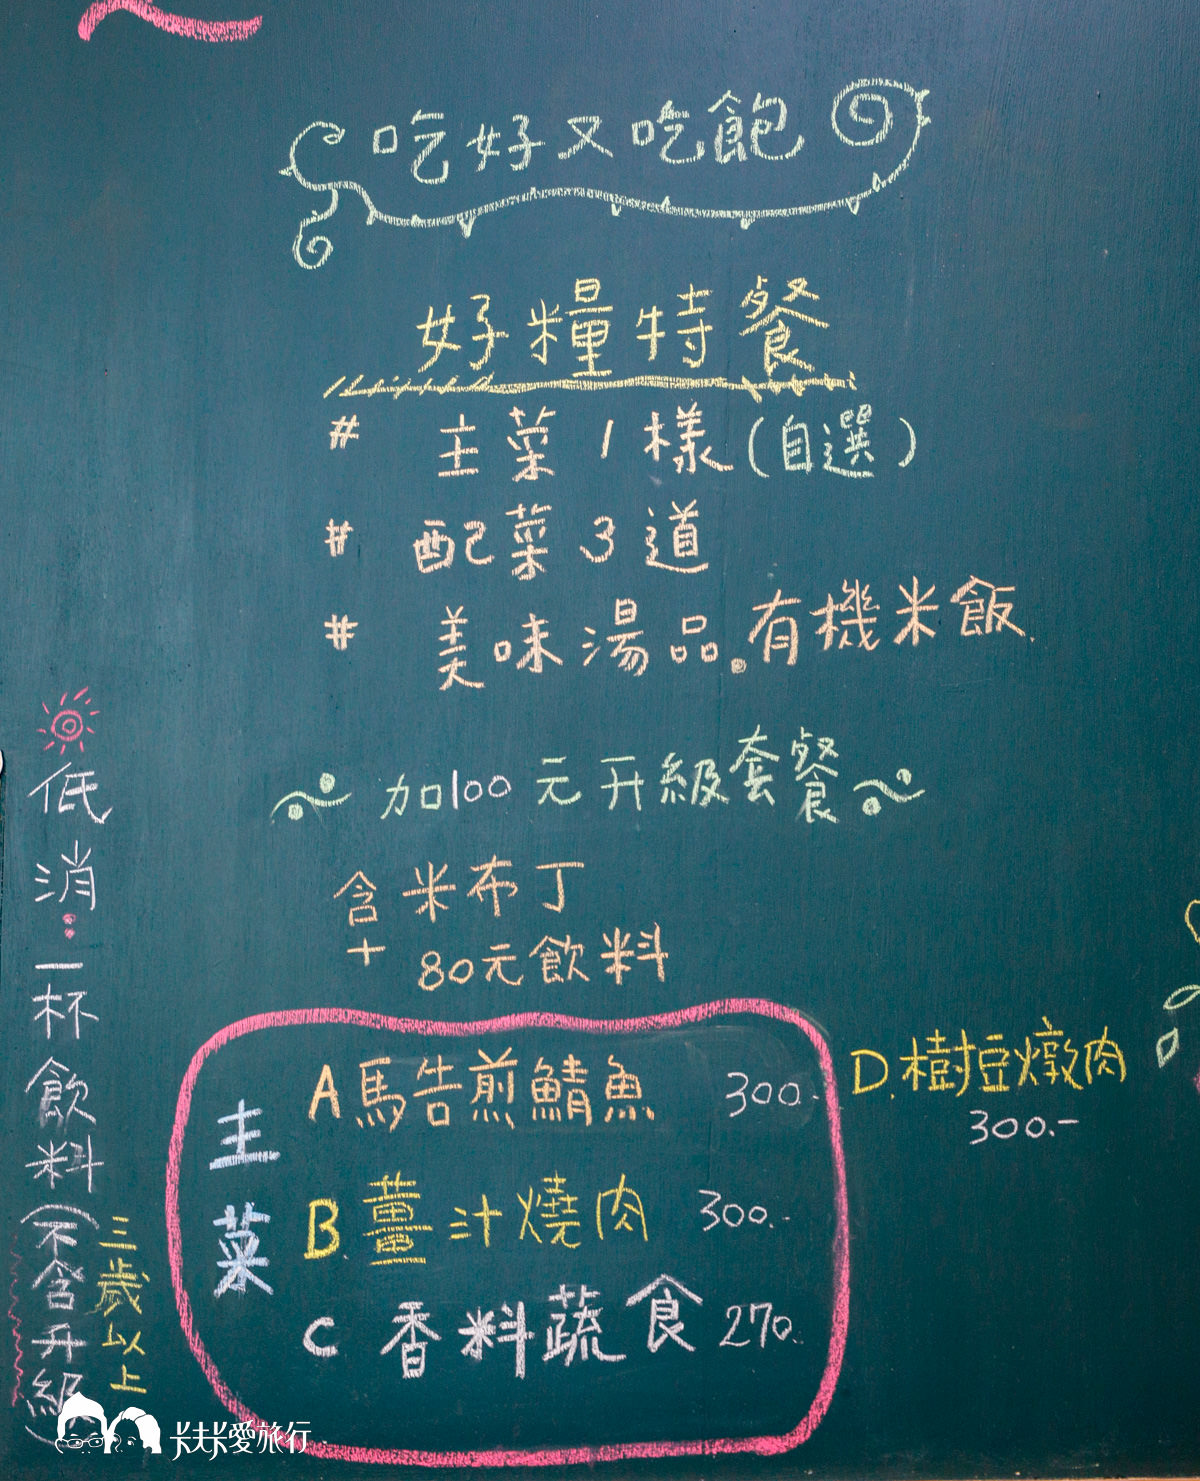 吃好又吃飽
好糧特餐
# 主菜1樣(自選)
# 配菜3道
# 美味湯品。有機米飯.
加100元升級套餐
含米布丁
+ 80元飲料
主菜
A 馬告煎鯖魚 300.-
B. 薑汁燒肉 300.-
C 香料蔬食 270.
D. 樹豆燉肉
300.-
低消:一杯飲料(不含升級)
三歲以上
卡夫卡愛旅行